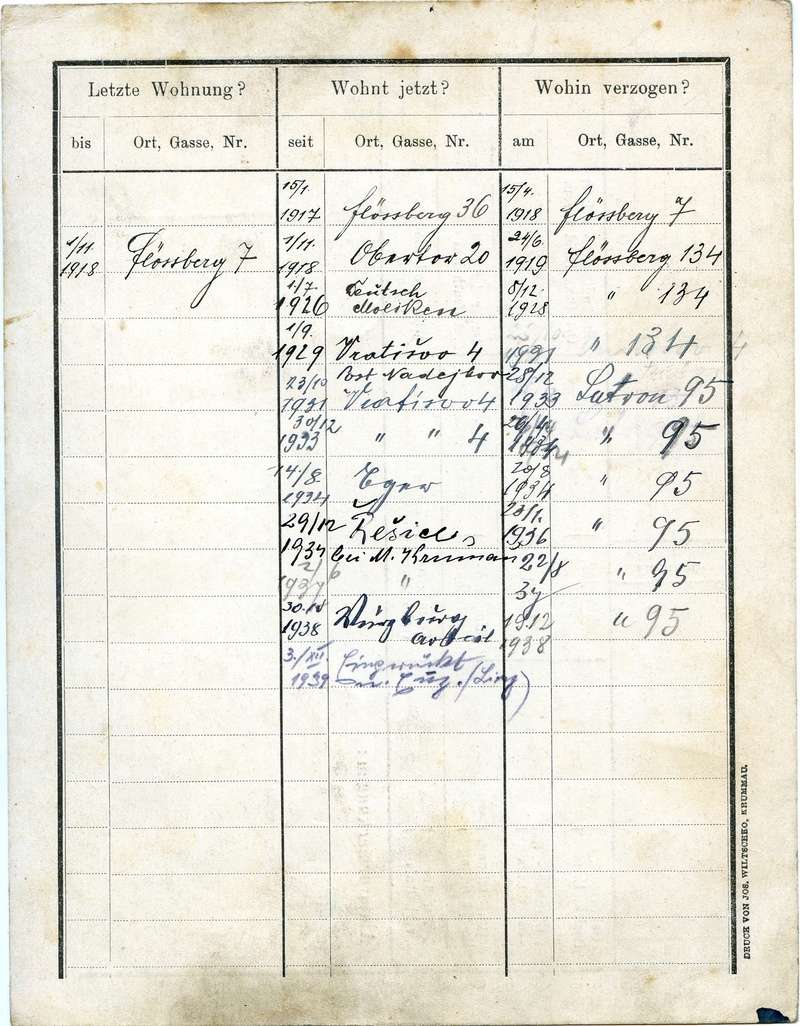 Letzte Wohnung? Wohnt jetzt? Wohin verzogen?
bis Ort, Gasse, Nr. seit Ort, Gasse, Nr. am Ort, Gasse, Nr.
15/1. 15/4.
1917 Flössberg 36 1918 Flössberg 7
1/11. 1/11. 24/6.
1918 Flössberg 7 1918 Obertor 20 1919 Flössberg 134
1/7. Deutsch 5/12.
1926 Moliken 1928 " 134
1/9.
1929 Vratišvo 4 1931 " 134
23/10 Post Nadejkov 28/12
1931 Vratišvo 4 1933 Latron 95
30/12
1933 " " 4 1934 " 95
14./8. 20/8
1934 Eger 1934 " 95
29/12 Řešice 23/1.
1934 bei M. Kruman 1936 " 95
2/6 22/8
1937 " 37 " 95
30.10 Würzburg 19.12
1938 Arbeit 1938 " 95
3./XII. Eingerückt
1939 (Linz)
DRUCK VON JOS. WILTSCHKO, KRUMMAU.